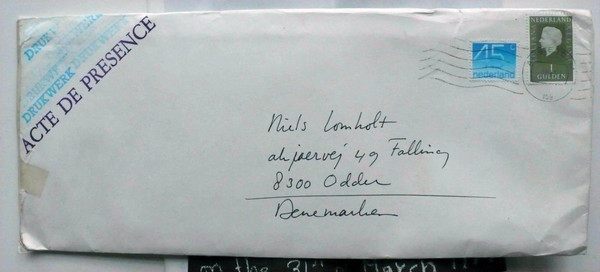 DRUKWERK
DRUKWERK DRUKWERK
DRUKWERK
ACTE DE PRESENCE
45 c
nederland
NEDERLAND
1
GULDEN
Niels Lomholt
49 Falling
8300 Odder
Denemarken
on the 31st March